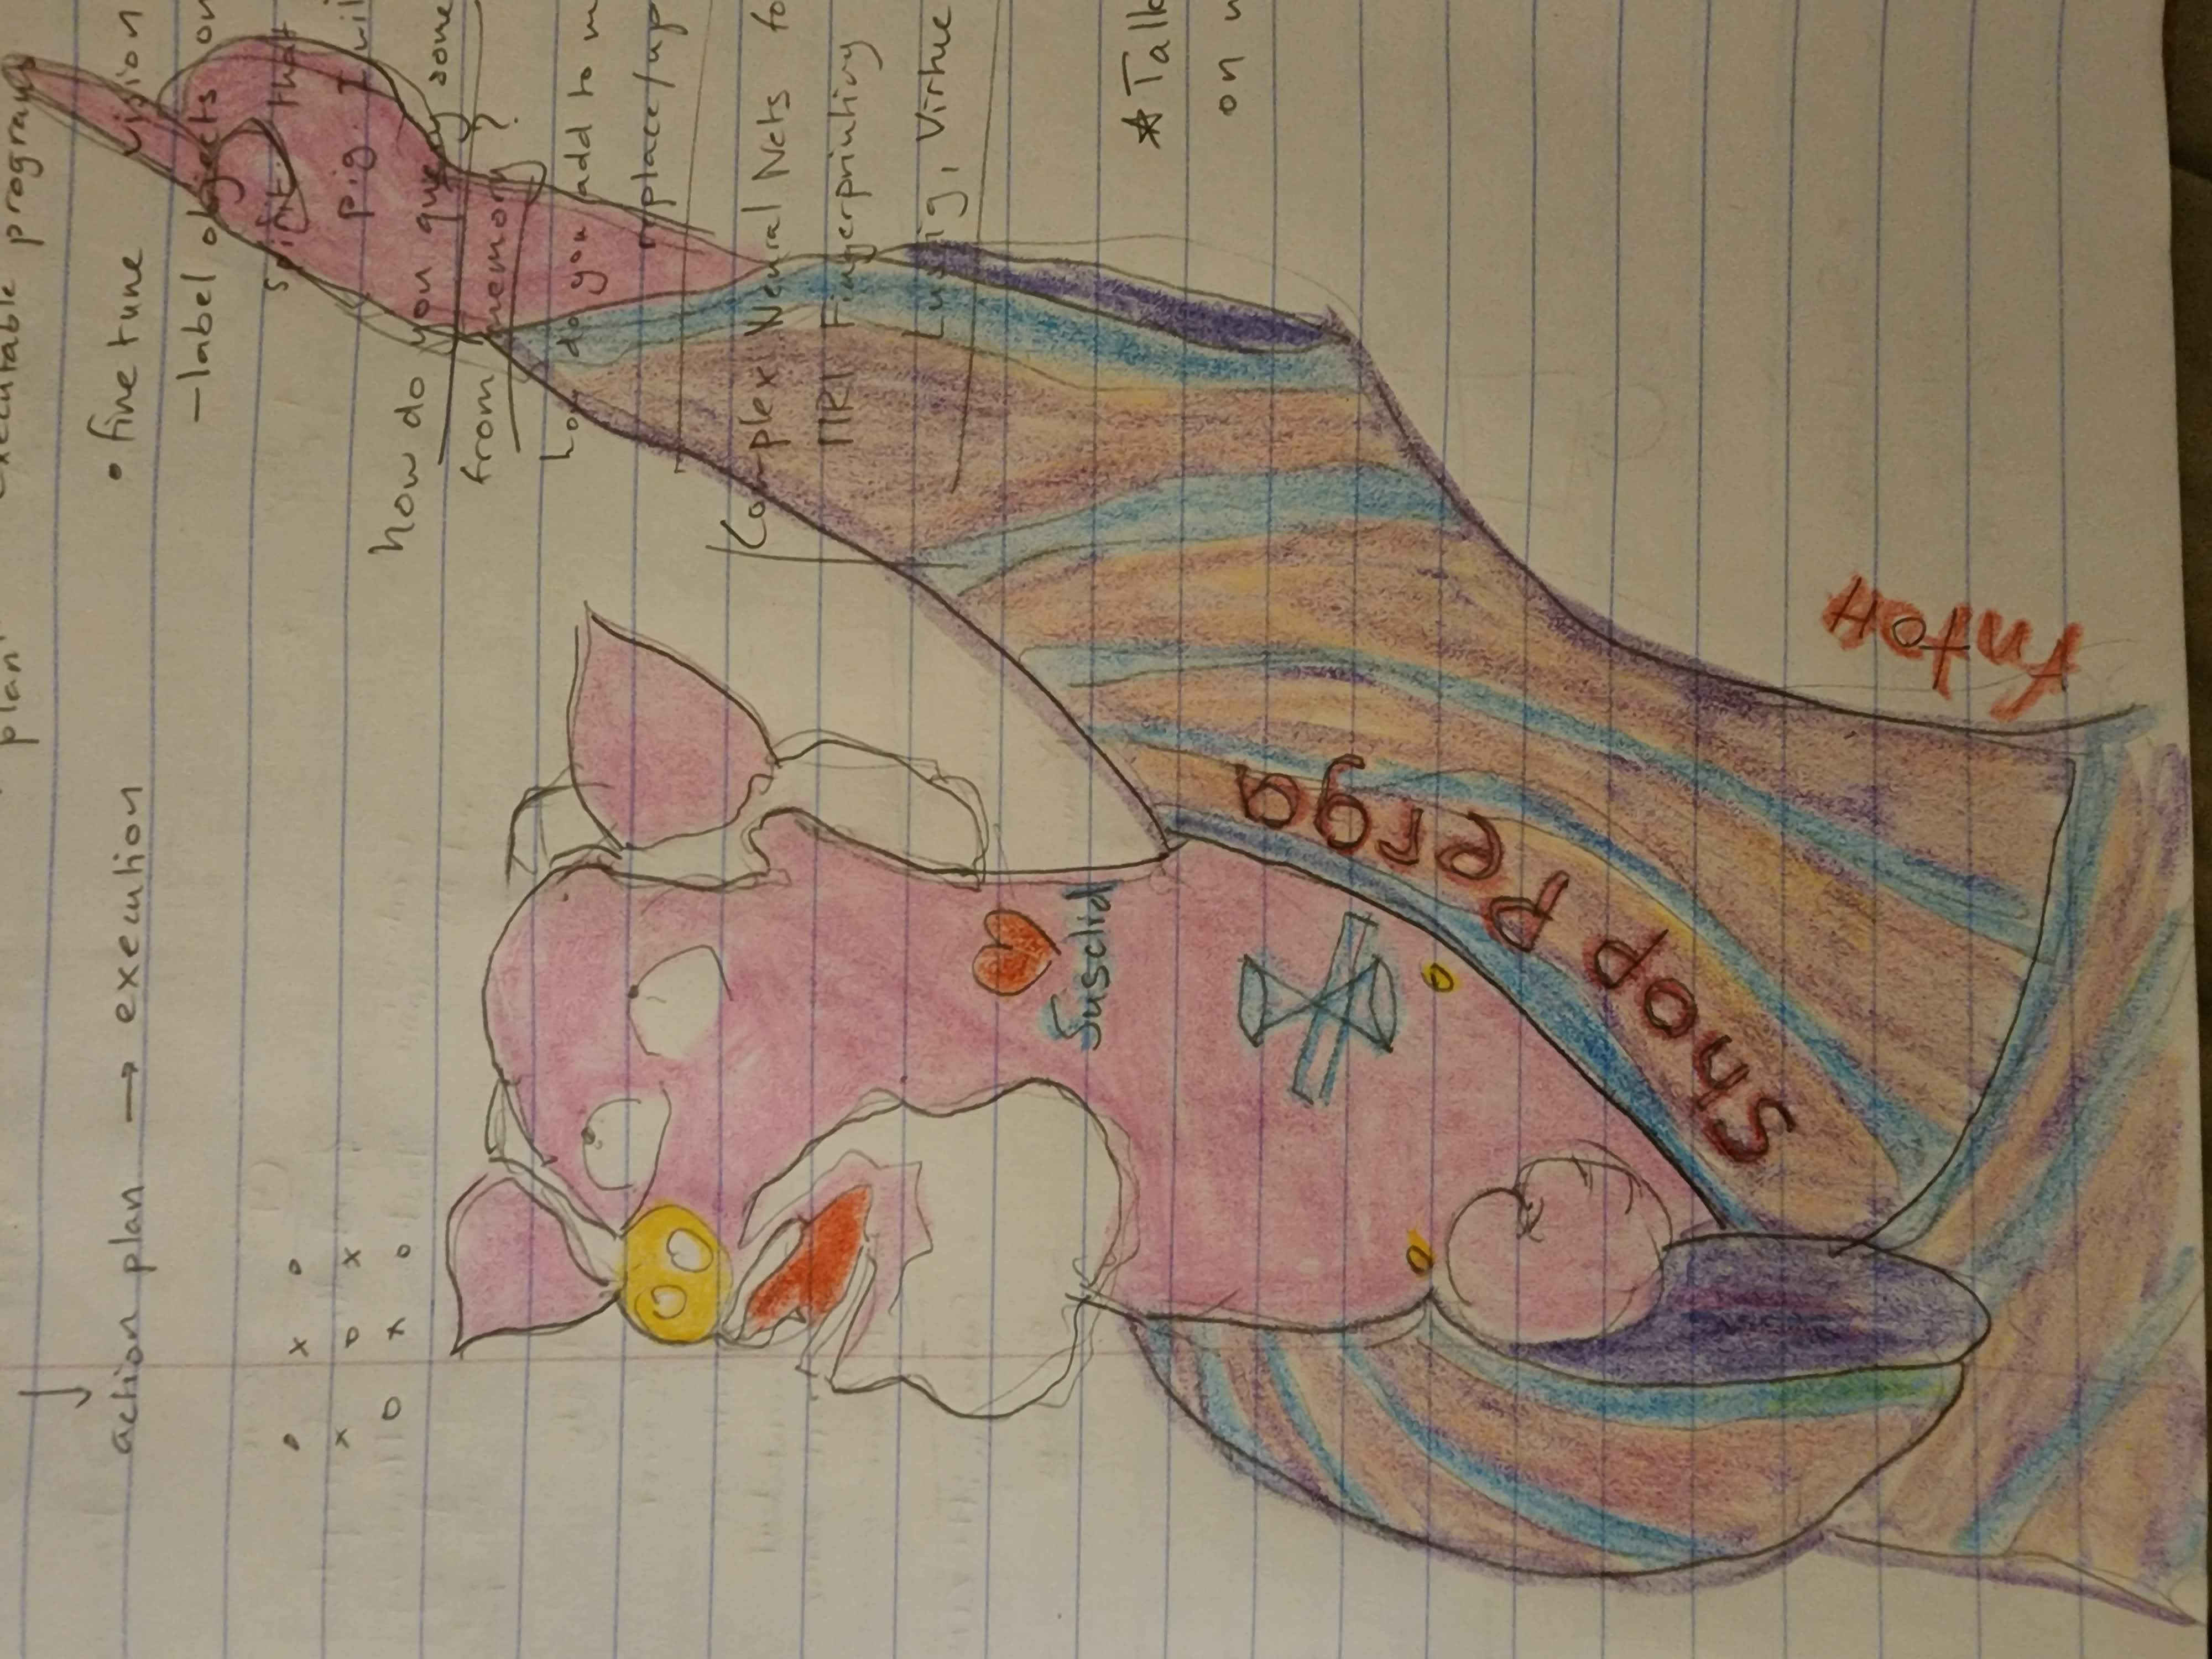 plan executable program
action plan → execution
• fine tune vision
- label objects on
spirit that
pig. I wil
how do you query some
from memory?
how do you add to m
replace/up
Complex Neural Nets fo
MRI Fingerprinting
Lustig, Virtue
☆ Talk
on w
o x o
x o x
o x o
Susclid
Shop Perga